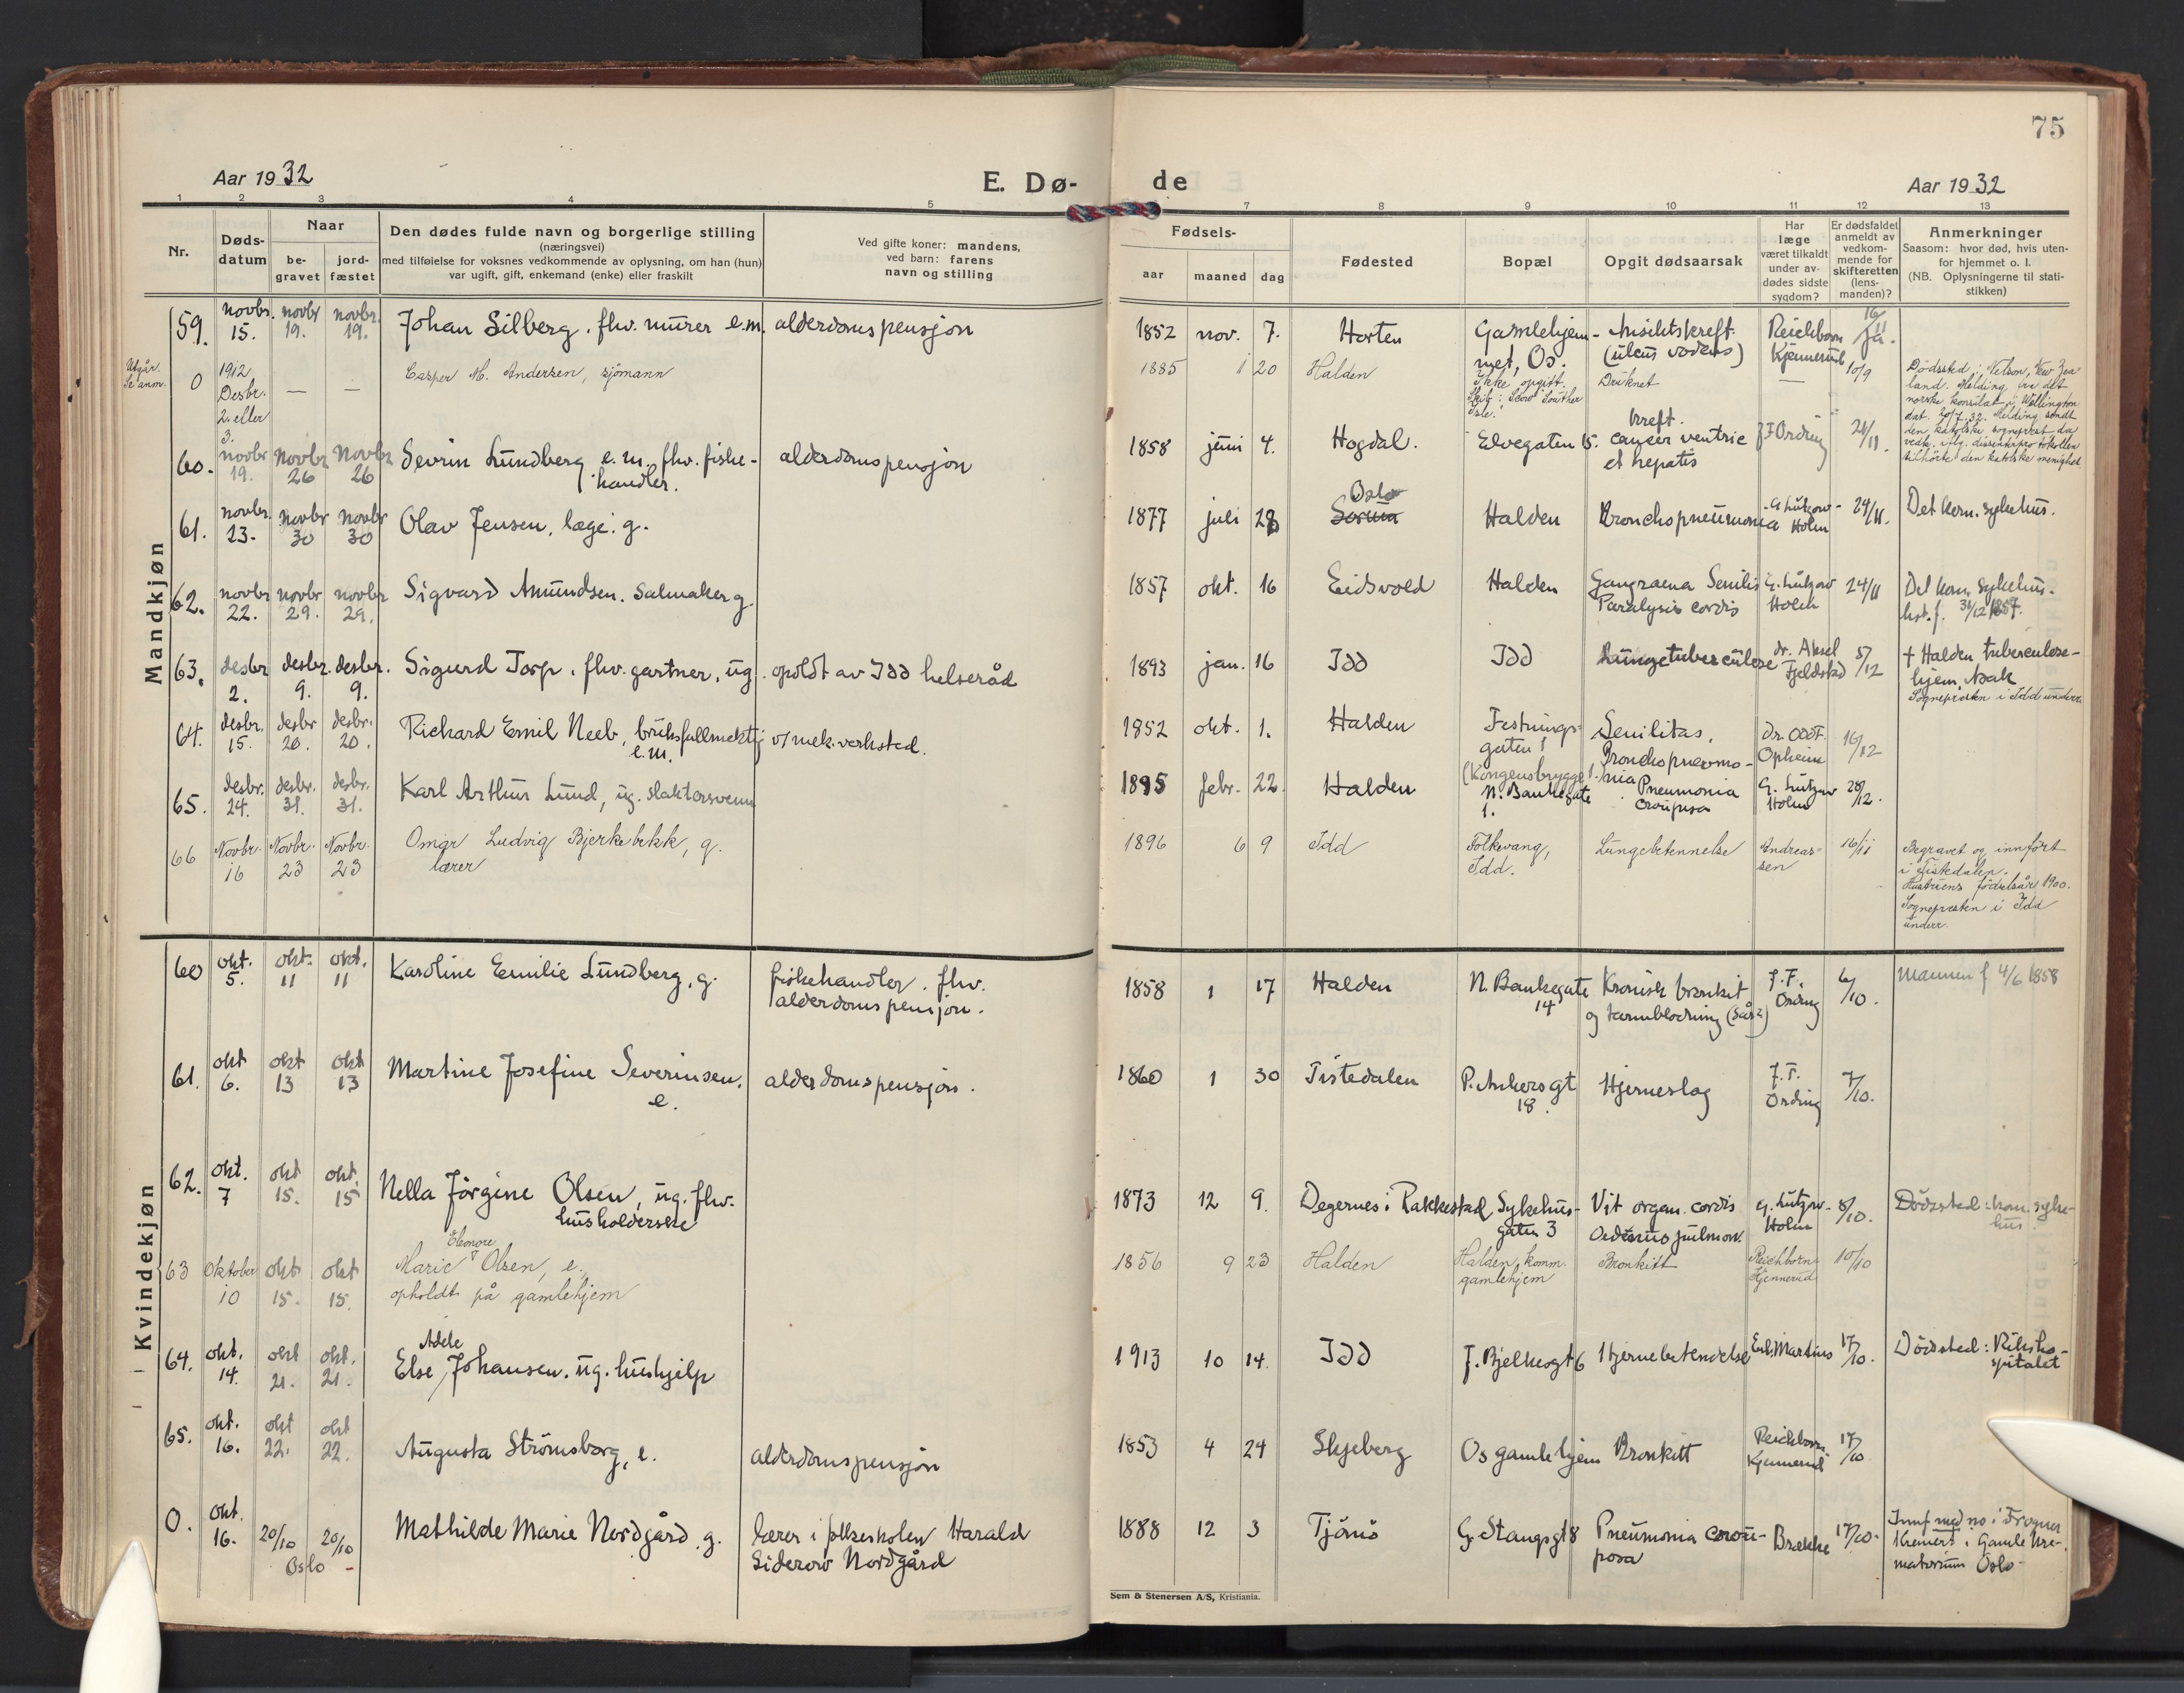 75
Aar 1932
E. Dø-
de
Aar 1932
1 2 3 4 5 7 8 9 10 11 12 13
Nr.
Døds-
datum
Naar
be-
gravet
jord-
fæstet
Den dødes fulde navn og borgerlige stilling
(næringsvei)
med tilføielse for voksnes vedkommende av oplysning, om han (hun)
var ugift, gift, enkemand (enke) eller fraskilt
Ved gifte koner: mandens,
ved barn: farens
navn og stilling
Fødsels-
aar maaned dag
Fødested
Bopæl
Opgit dødsaarsak
Har
læge
været tilkaldt
under av-
dødes sidste
sygdom?
Er dødsfaldet
anmeldt av
vedkom-
mende for
skifteretten
(lens-
manden)?
Anmerkninger
Saasom: hvor død, hvis uten-
for hjemmet o. l.
(NB. Oplysningerne til stati-
stikken)
Mandkjøn
59. novbr. 15. novbr 19. novbr. 19. Johan Silberg. fhv. murer e.m. alderdomspensjon 1852 nov. 7. Horten Gamlehjem- Ansiktskreft. Reichborn 16/11
met, Os. (ulcus rodens) Kjennerud ja.
Utgår.
Se anm. 0 1912 Desbr. 2. eller 3. — — Casper M. Andersen, sjömann 1885 1 20 Halden Ikke opgitt. Druknet — 10/9 Dödssted: Nelson, New Zea
land. Melding fra det
norske konsulat i Wellington
dat. 20/7.32. Melding sendt
den katolske sogneprest da
vedk. iflg. dissenterprotokollen
tilhörte den katolske menighet
60. novbr 19. Novbr 26 Novbr 26 Sevrin Lundberg e.m. fhv. fiske-
handler. alderdomspensjon 1858 juni 4. Hogdal. Elvegaten 15. kreft.
cancer ventric
et hepatis J F Ording 21/11.
61. novbr. 23. Novbr 30 Novbr 30 Olav Jensen, læge. g. 1877 juli 28 Oslo
Halden Bronchopneumonia G. Lützow-
Holm 24/11. Det kom. sykehus.
62. novbr 22. novbr 29. novbr 29. Sigvard Amundsen. salmaker g. 1857 okt. 16 Eidsvold Halden Gangraena Senilis
Paralysis cordis G. Lützow
Holm 24/11 Det kom. sykehus.
hst. f. 31/12 1857.
63. desbr 2. desbr. 9. desbr. 9. Sigurd Torp. fhv. gartner, ug. opoldt av Idd helseråd 1893 jan. 16 Idd Idd Lungetuberculose dr. Aksel
Fjeldstad 5/12 † Halden tuberculose-
hjem, Asak
Sognepresten i Idd underr.
64. desbr. 15. desbr 20. desbr. 20. Richard Emil Neeb, bruksfullmektig v/ mek. verksted.
e.m. 1852 okt. 1. Halden Festnings-
gaten 1 Senilitas,
Bronchopnevmo-
nia dr. Odd F.
Opheim 16/12
65. desbr. 24. desbr. 31. desbr. 31. Karl Arthur Lund, ug. slaktersvenn 1895 febr. 22. Halden (Kongensbrygge 1.
N. Bankegate
1. Pneumonia
crouposa G. Lützow
Holm 28/12.
66 Novbr. 16 Novbr. 23 Novbr. 23 Omar Ludvig Bjerkebekk, g.
lærer 1896 6 9 Idd Folkevang,
Idd. Lungebetennelse Andreas-
sen 16/11 Begravet og innfört
i Tistedalen.
Hustruens födselsår 1900.
Sognepresten i Idd
underr.
Kvindekjøn
60 okt. 5. okt. 11 okt. 11 Karoline Emilie Lundberg, g. fiskehandler. fhv.
alderdomspensjon. 1858 1 17 Halden N. Bankegate
14 Kronisk bronkit
og tarmblödning (sår?) J. F.
Ording 6/10. Mannen f 4/6 1858
61. okt 6. okt 13 okt 13 Martine Josefine Severinsen.
e. alderdomspensjon. 1860 1 30 Tistedalen P. Ankersgt
18. Hjerneslag J. F.
Ording 7/10.
62. okt. 7 okt 15. okt. 15 Nella Jörgine Olsen, ug. fhv.
husholderske 1873 12 9. Degernes i Rakkestad Sykehus-
gaten 3 Vit. organ. cordis
Oedemus pulmon. G. Lützow-
Holm 8/10. Dödssted: kom. syke-
hus.
63 Oktober 10 okt 15. okt 15. Marie Eleonore Olsen, e.
opholdt på gamlehjem 1856 9 23 Halden Halden komm.
gamlehjem Bronkitt Reichborn
Kjennerud 10/10
64. okt. 14. okt 21. okt. 21. Else Adele Johansen. ug. hushjelp 1913 10 14. Idd J. Bjelkesgt 6 Hjernebetendelse Martins 17/10. Dödssted: Riksho-
spitalet
65. okt. 16. okt 22. okt 22. Augusta Strömsborg, e. alderdomspensjon 1853 4 24 Skjeberg Os gamlehjem Bronkitt Reichborn
Kjennerud 17/10
0. okt. 16. 20/10 20/10
Oslo - Mathilde Marie Nordgård. g. lærer i folkeskolen Harald
Siderow Nordgård 1888 12 3 Tjömö G. Stangsgt 8 Pneumonia crou-
posa Brække 17/10. Innf med no i Frogner
Kremert i Gamle kre-
matorium Oslo-
Sem & Stenersen A/S, Kristiania.